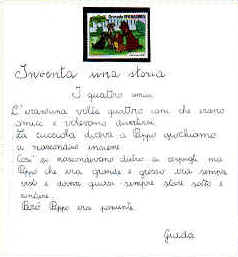 Grenada GRENADINES
Inventa una storia
I quattro amici
C'era una volta quattro cani che erano
amici e volevano divertirsi.
La cucciola diceva a Pippo giochiamo
a nascondino insieme.
Così si nascondevano dietro ai cespugli ma
Pippo che era grande e grosso era sempre
visto e doveva sempre stare sotto a
contare.
Però Pippo era paziente.
Guida